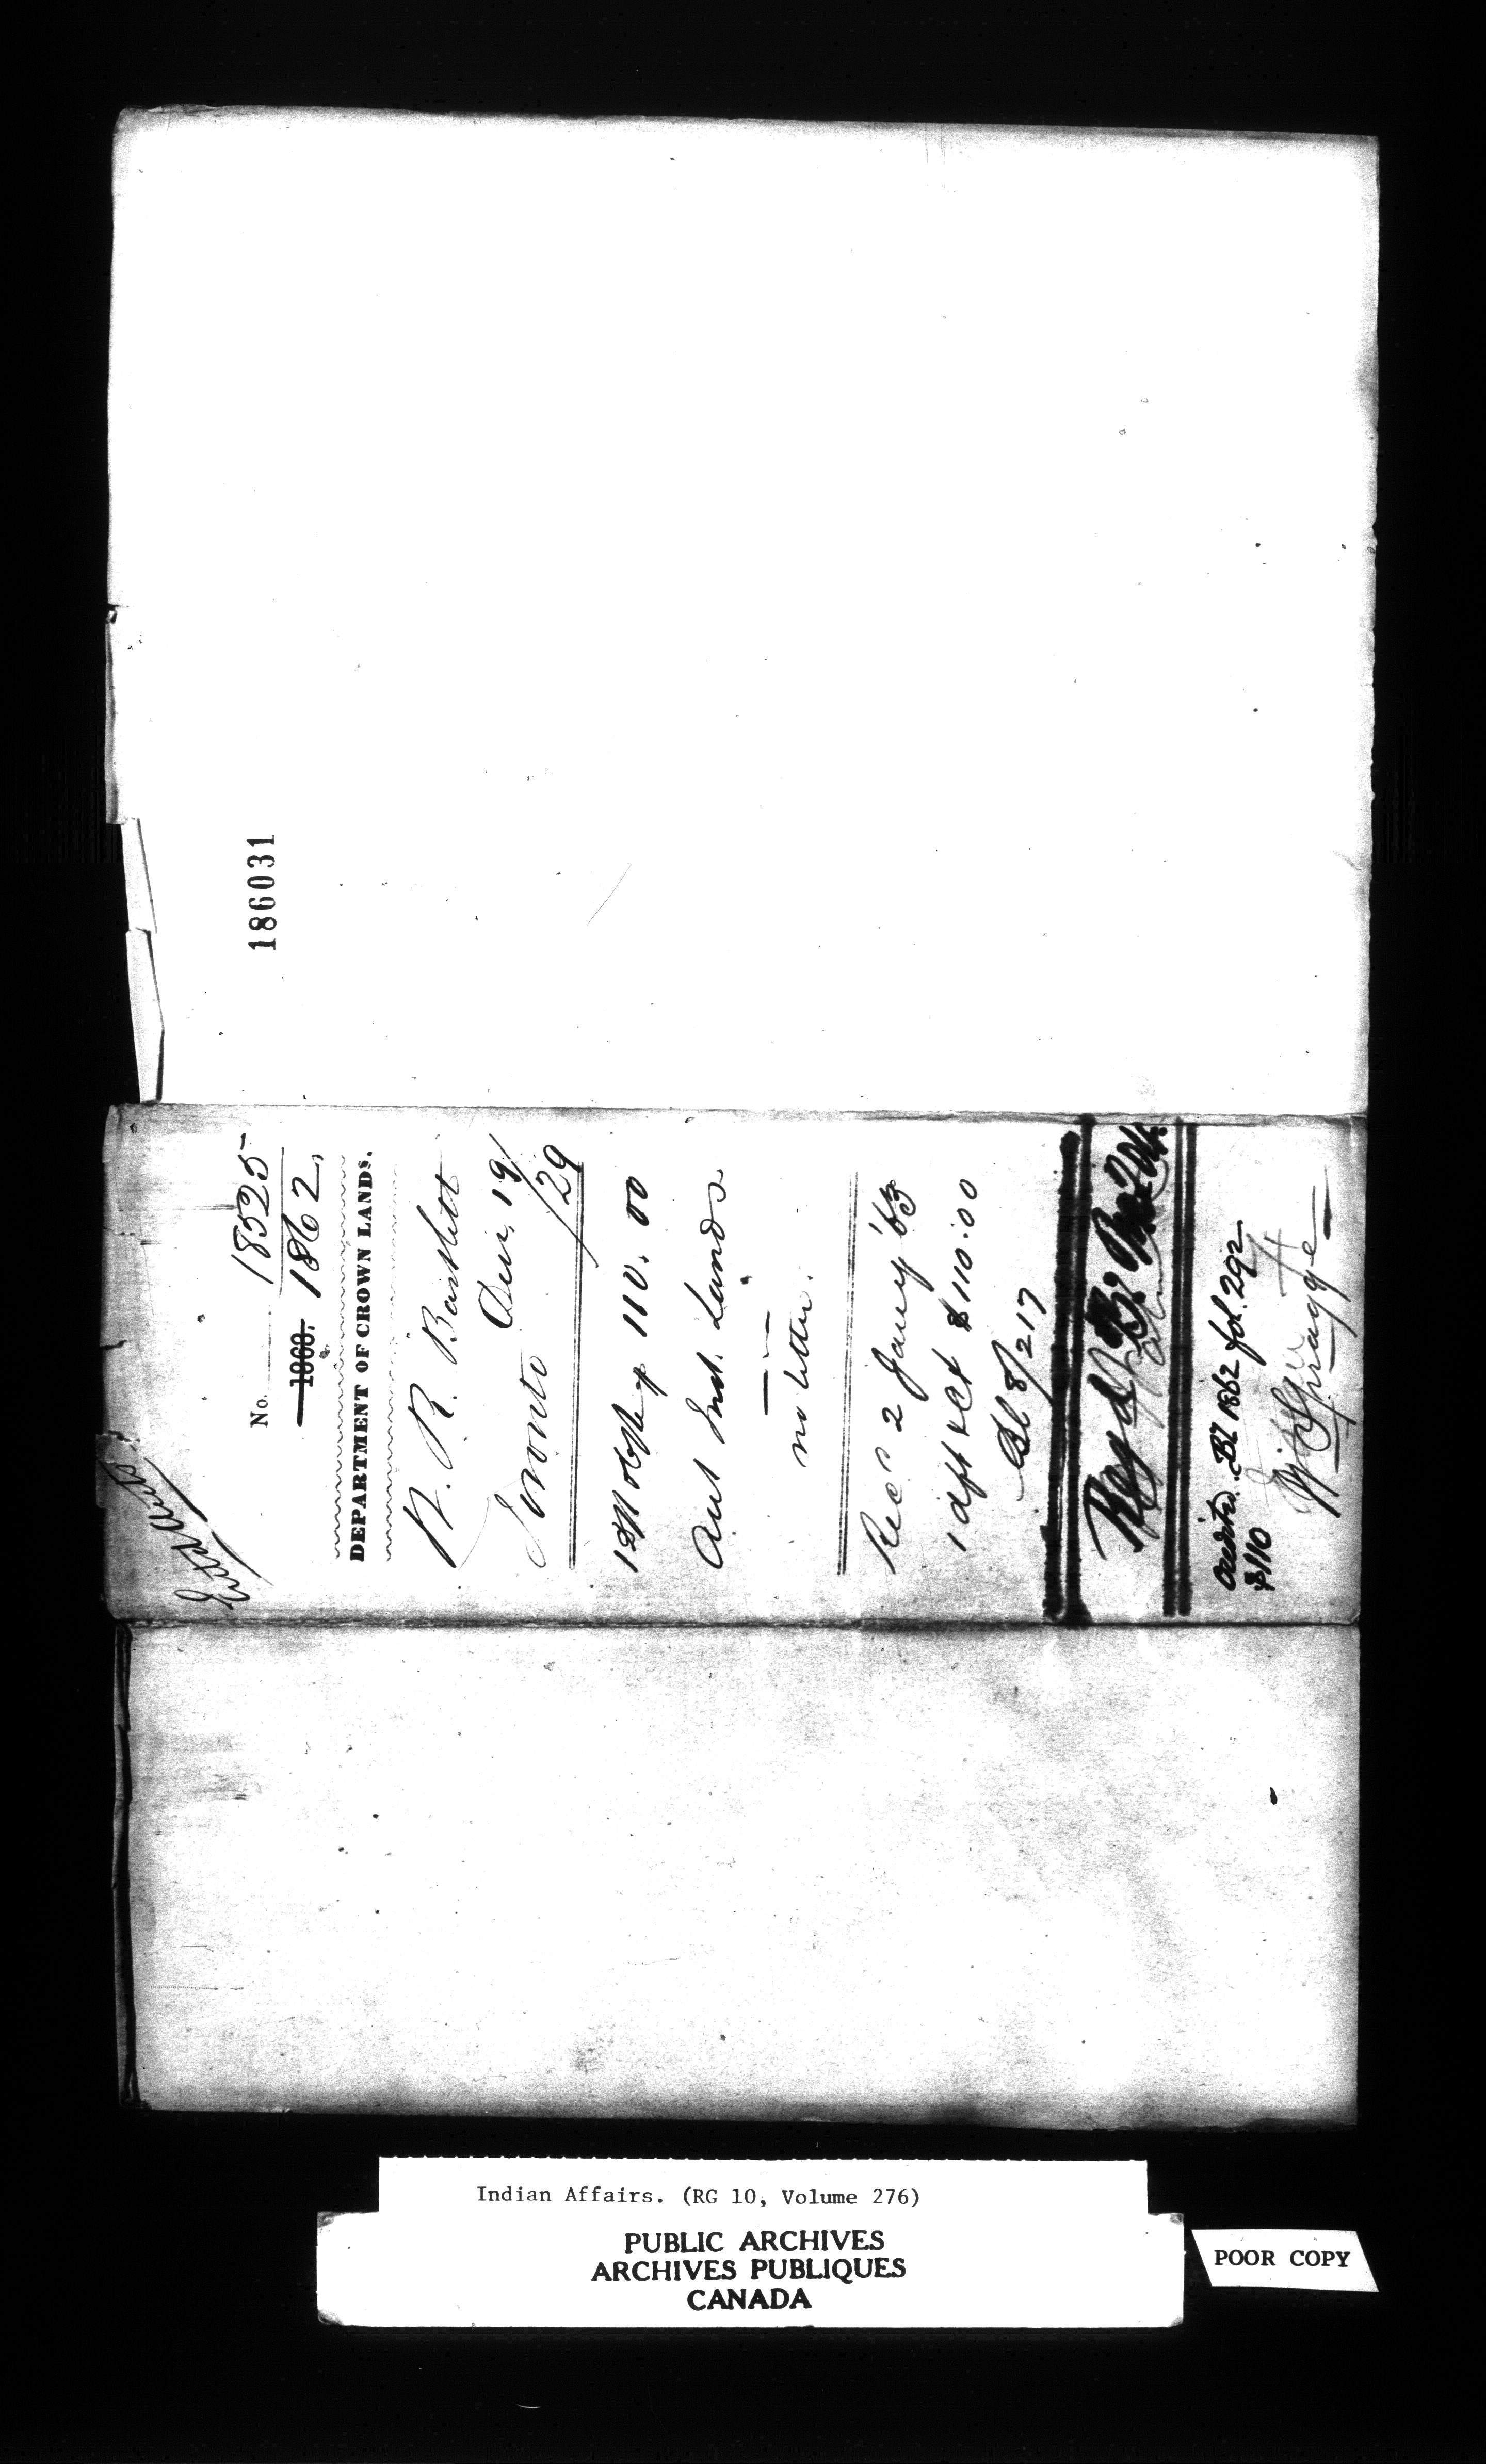 186031
No. 18525
1860. 1862,
DEPARTMENT OF CROWN LANDS.
W. R. Bartlett
Toronto Dec. 19/29
110.00
Ind. Lands
no letter.
Rec 2 Jany '63
1 dft & Ct $110.00
8/217
Regd
Audited BL 1862 fol. 292
$110
W Spragge
Indian Affairs. (RG 10, Volume 276)
PUBLIC ARCHIVES
ARCHIVES PUBLIQUES
CANADA
POOR COPY